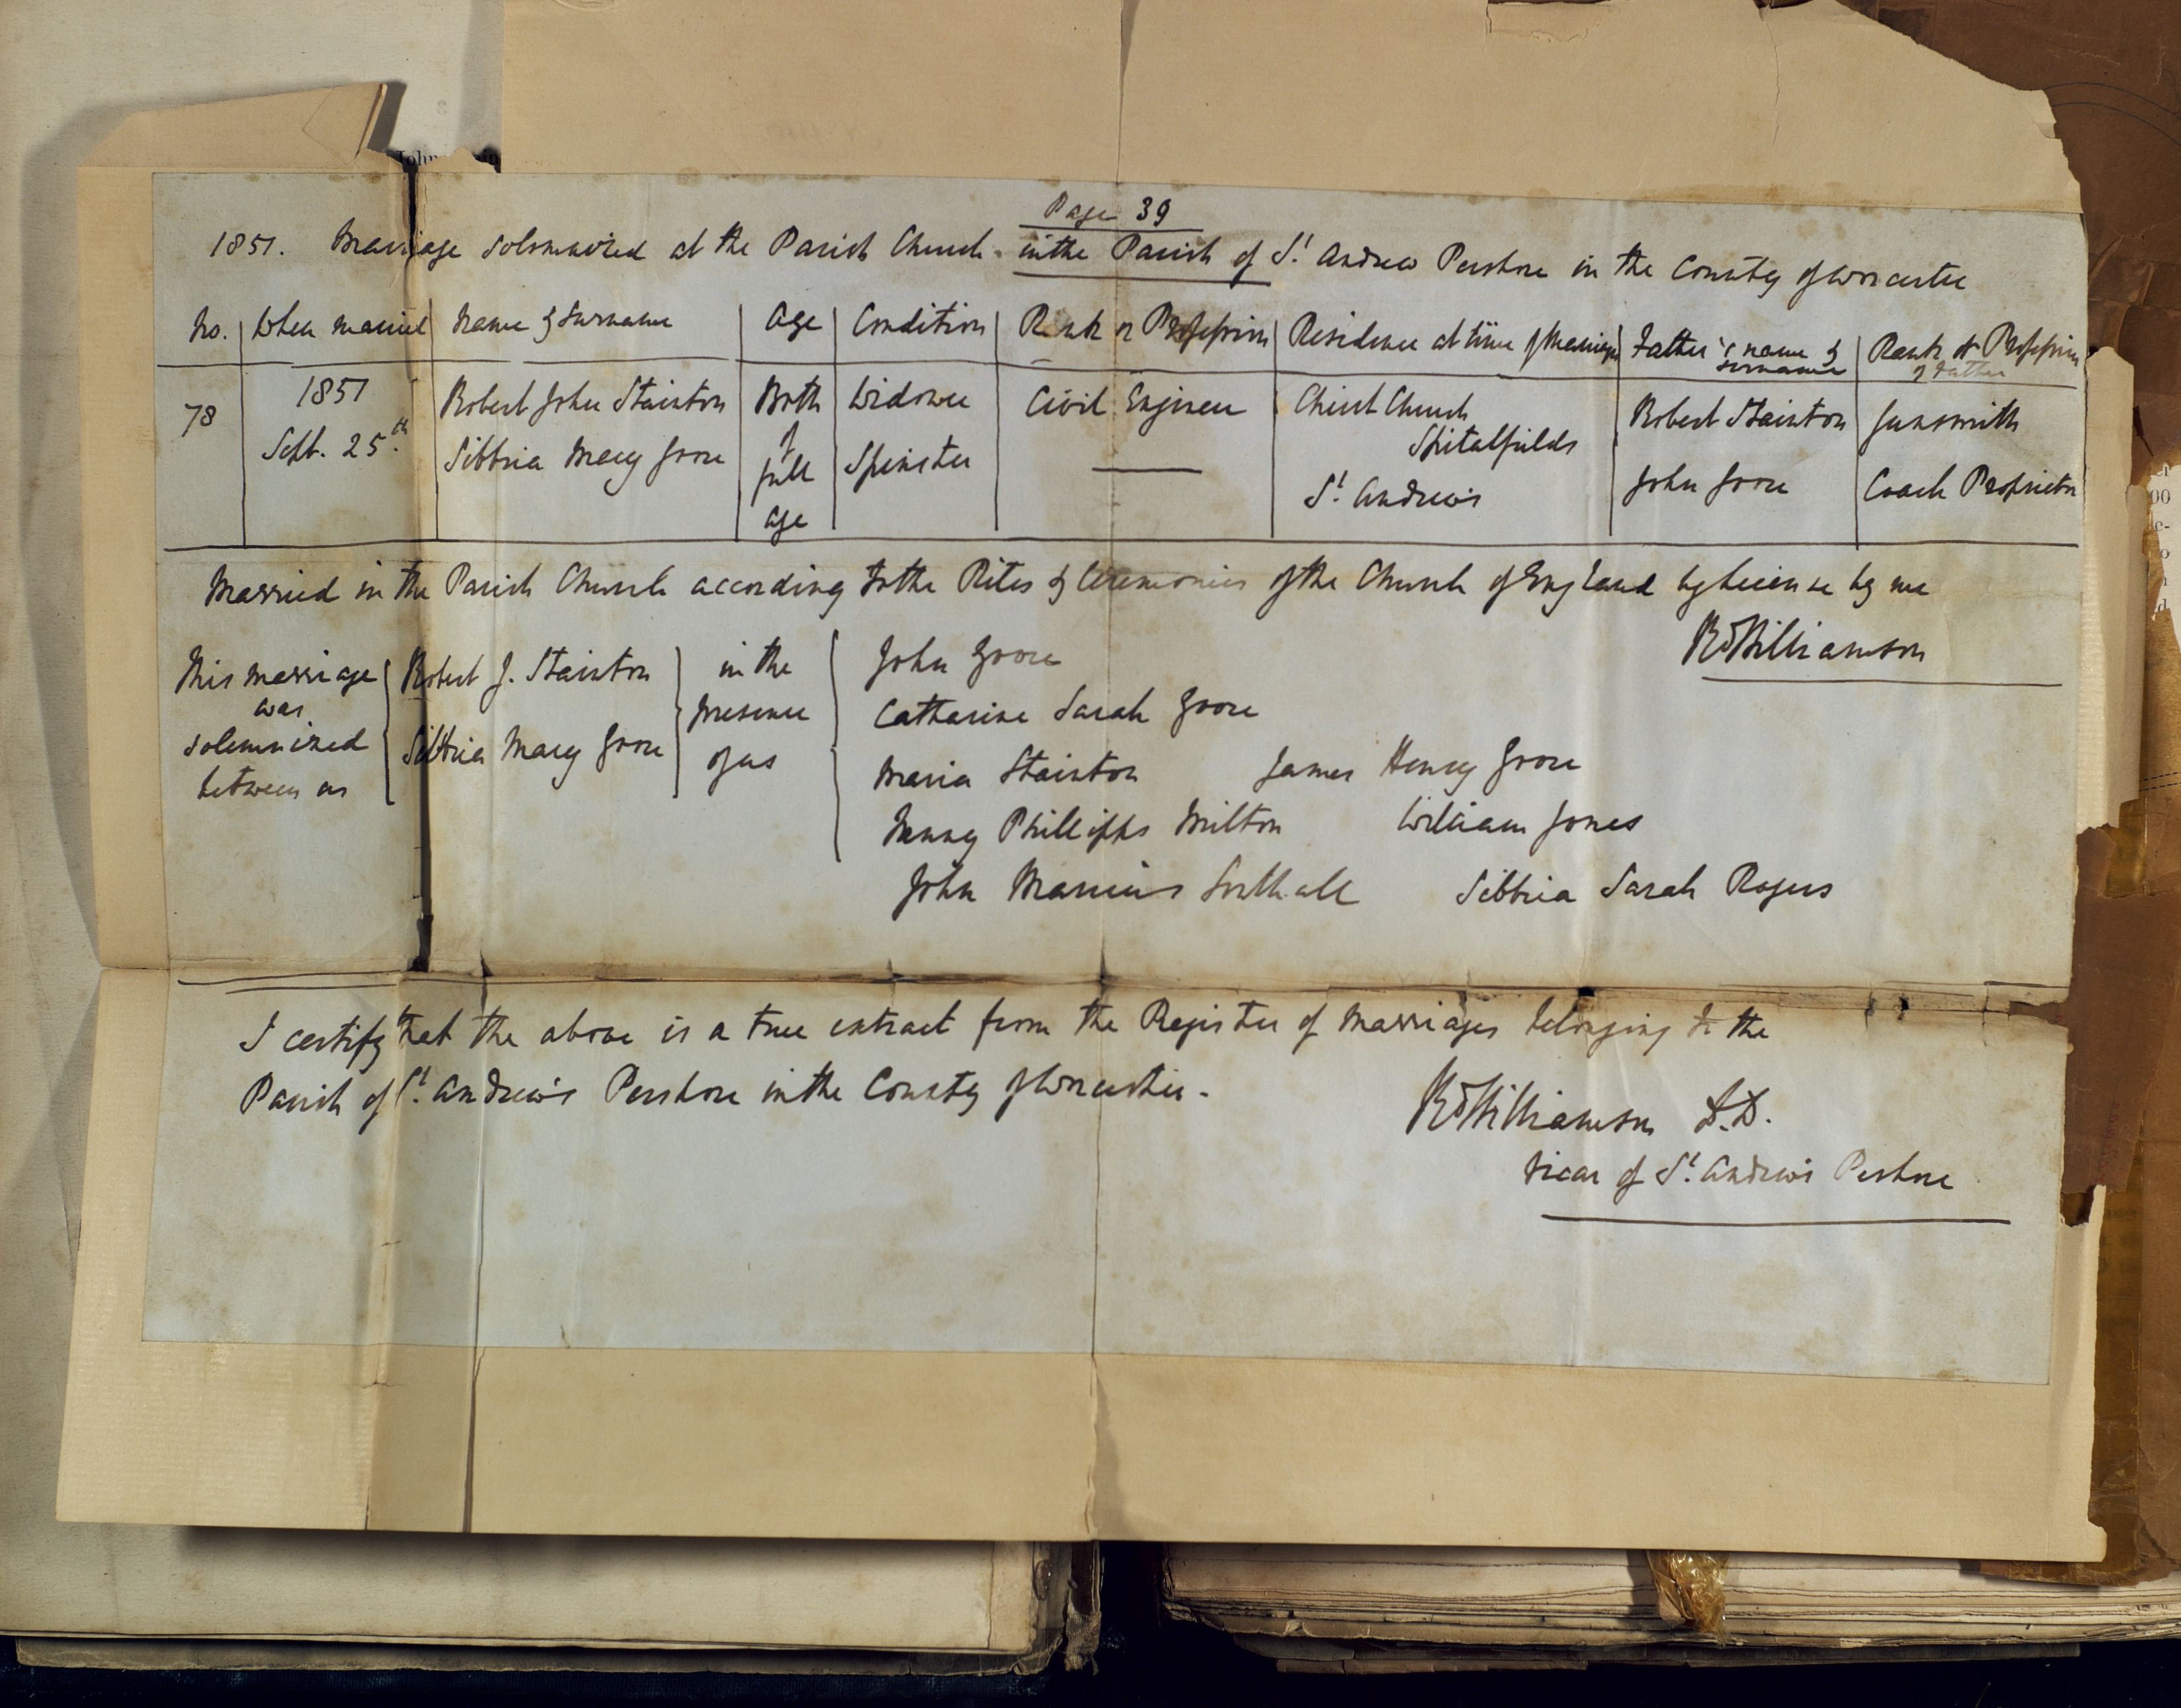 Page 39
1851. Marriage solemnized at the Parish Church in the Parish of St. Andrew Pershore in the County of Worcester
No. When married Name & Surname Age Condition Rank or Profession Residence at time of Marriage Father's name & surname Rank or Profession of Father
78 1851 Sept. 25.th Robert John Stainton Both of full age Widower Civil Engineer Christ Church Spitalfields Robert Stainton Gunsmith
Sibbria Mary Grove Spinster — St. Andrew's John Grove Coach Proprietor
Married in the Parish Church according to the Rites & Ceremonies of the Church of England by license by me
R Williamson
This marriage was solemnized between us
Robert J. Stainton
Sibbria Mary Grove
in the presence of us
John Grove
Catharine Sarah Grove
Maria Stainton James Henry Grove
Phillipps Milton William Jones
John Southall Sibbria Sarah Rogers
I certify that the above is a true extract from the Register of Marriages belonging to the
Parish of St. Andrew's Pershore in the County of Worcester.
R Williamson D.D.
Vicar of St. Andrew's Pershore